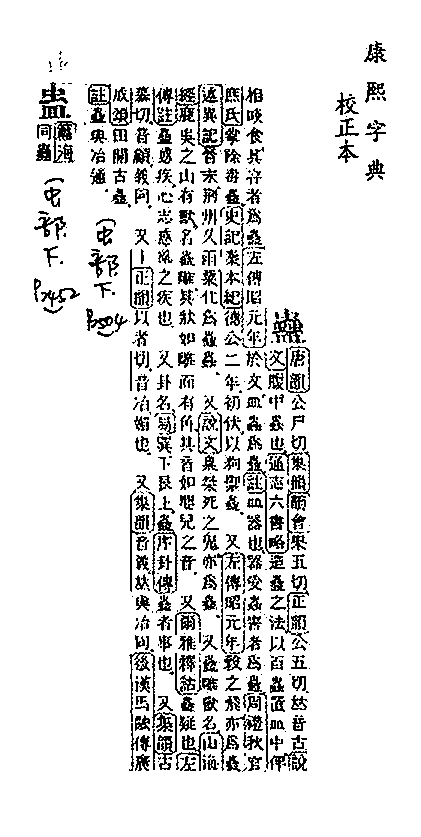 康熙字典
校正本
蠱
唐韻公戶切集韻韻會果五切正韻公五切𠀤音古說
文腹中蟲也通志六書略造蠱之法以百蟲置皿中俾
相啖食其存者爲蠱左傳昭元年於文皿蟲爲蠱註皿器也器受蟲害者爲蠱周禮秋官
庶氏掌除毒蠱史記秦本紀德公二年初伏以狗禦蠱 又左傳昭元年穀之飛亦爲蠱
述異記晉末荆州久雨粟化爲蠱蟲 又說文梟桀死之鬼亦爲蠱 又蠱雕獸名山海
經鹿吳之山有獸名蠱雕其狀如雕而有角其音如嬰兒之音 又爾雅釋詁蠱疑也左
傳註蠱惑疾心志惑亂之疾也 又卦名易巽下艮上蠱序卦傳蠱者事也 又集韻古
慕切音顧義同 又正韻以者切音冶媚也 又集韻音義𠀤與冶同後漢馬融傳廣
成頌田開古蠱
註蠱與冶通
(虫部下 P504)
蛊
篇海
同蠱
(虫部下 P2452)